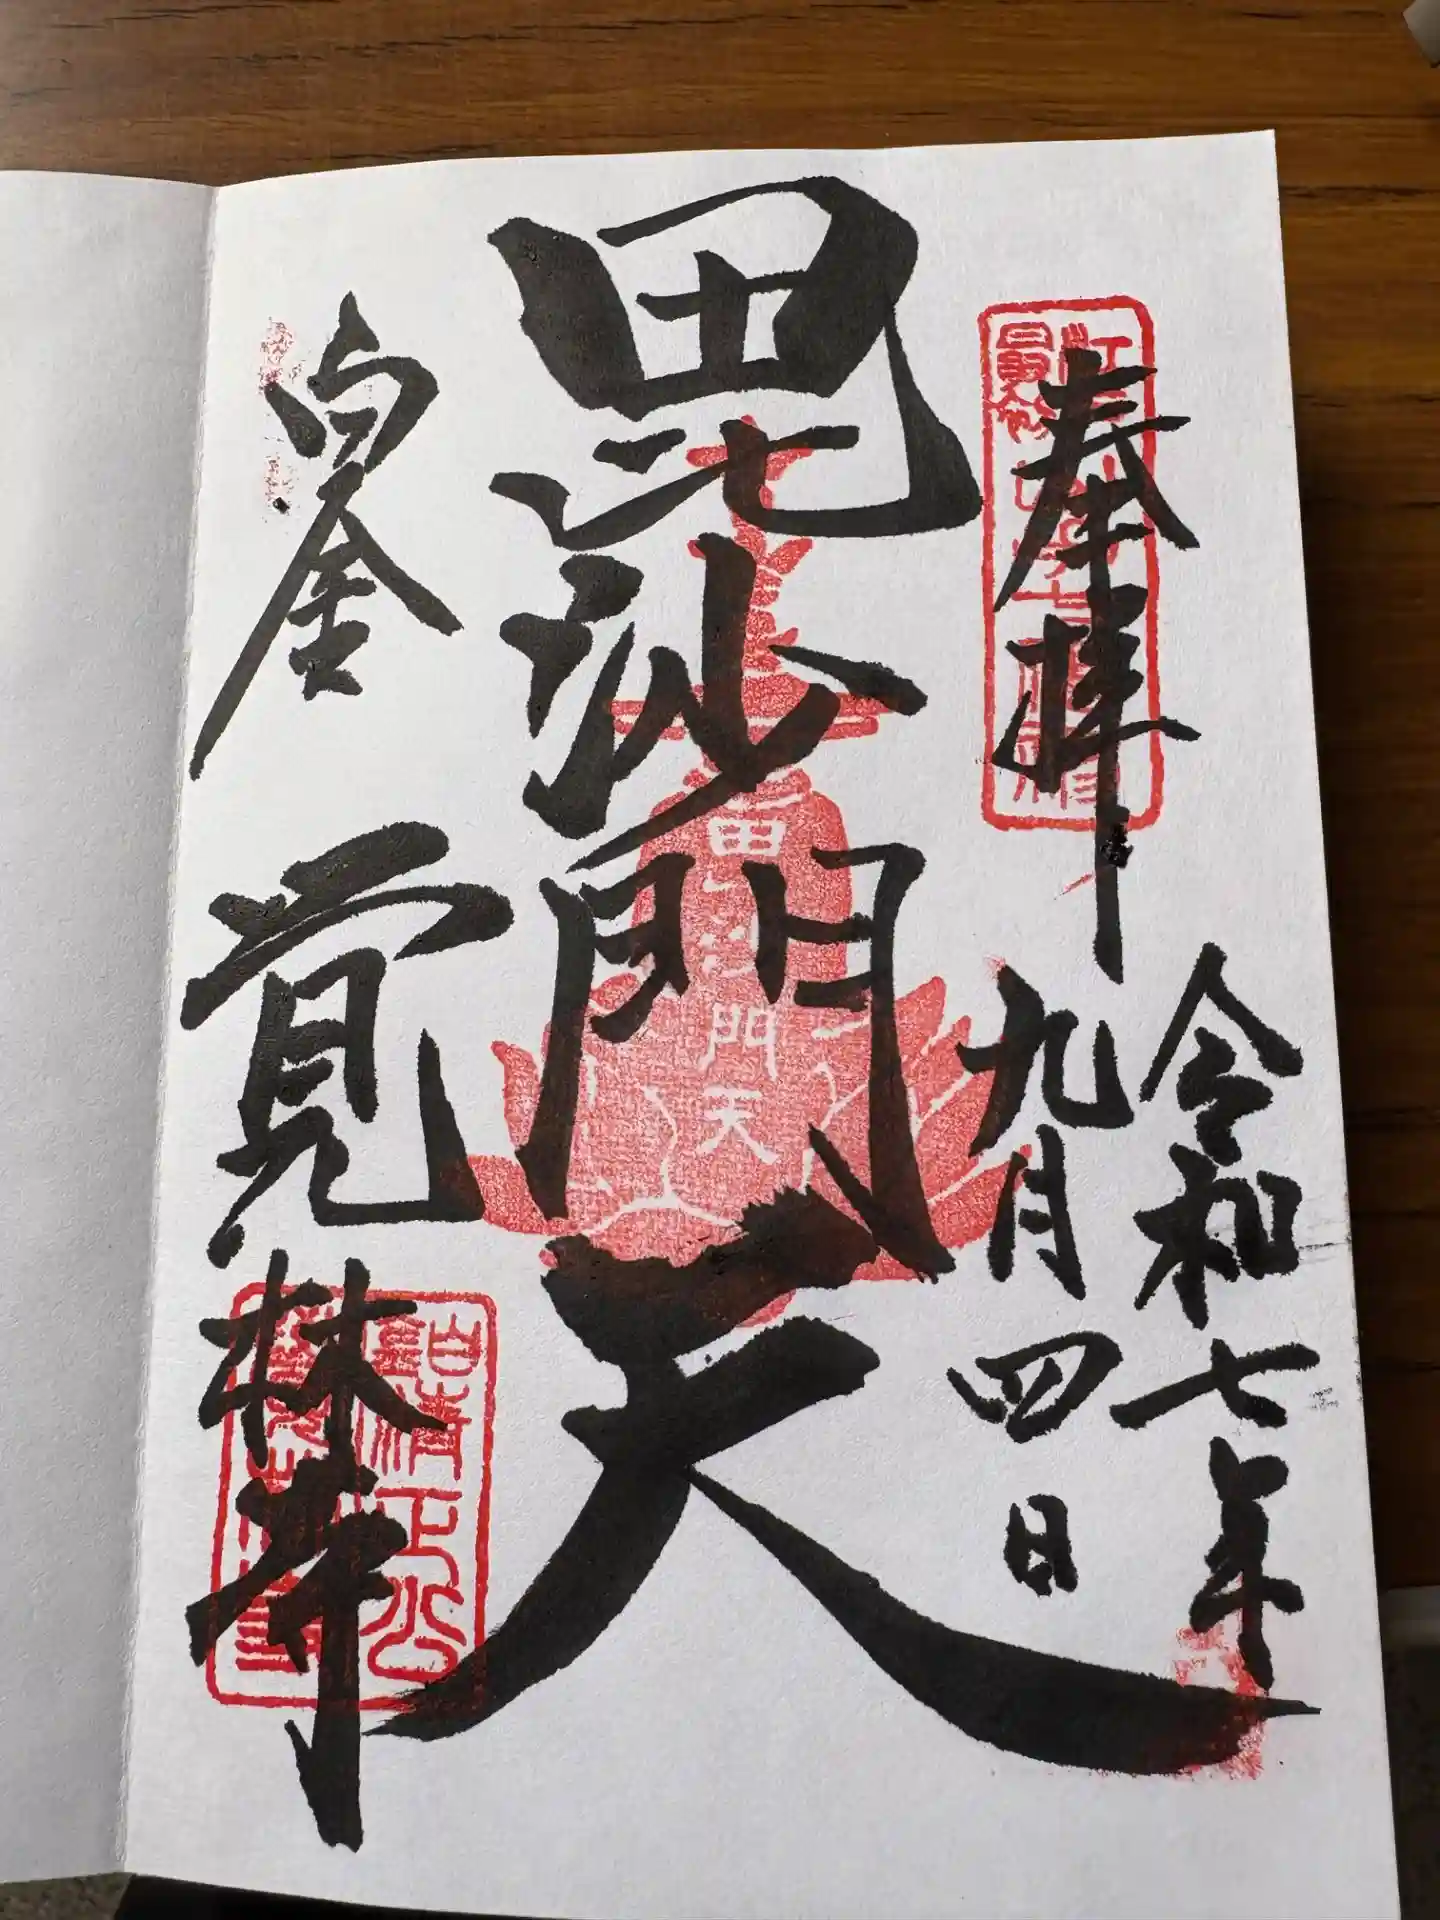 奉拝
令和七年
九月四日
毘沙門天
毘沙門天
白金
覚林寺
清正公